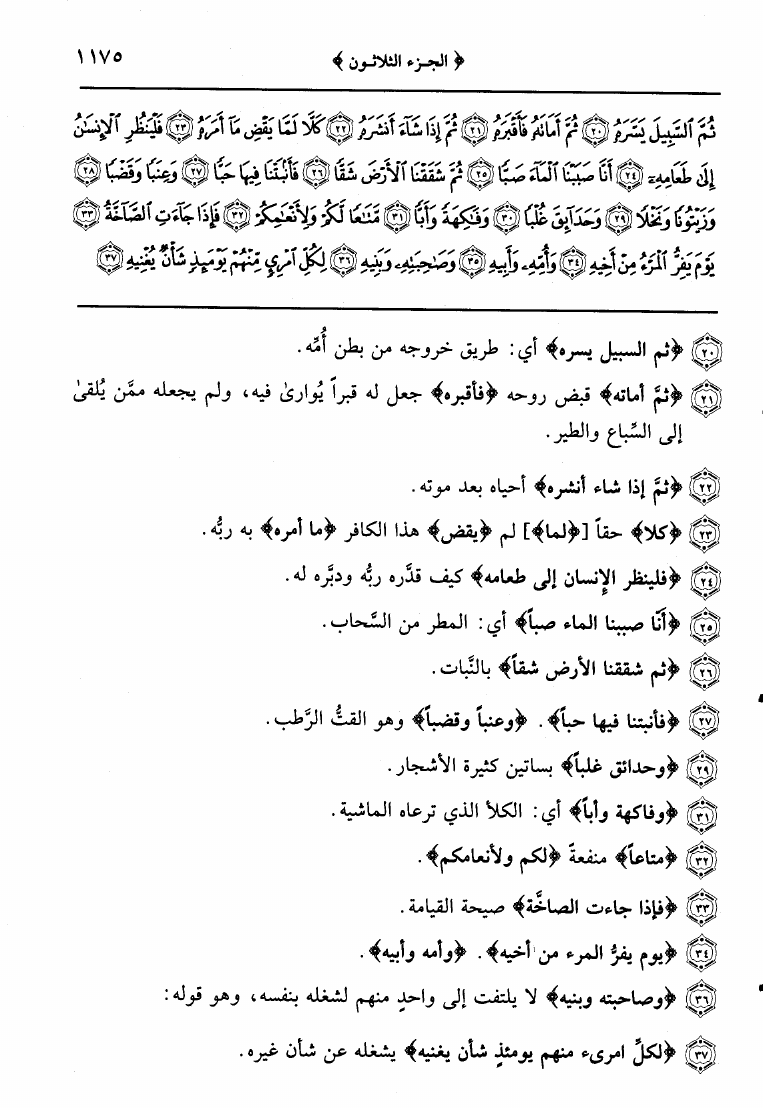 ﴿ الجزء الثلاثون ﴾ ١١٧٥
ثُمَّ ٱلسَّبِيلَ يَسَّرَهُۥ ٢٠ ثُمَّ أَمَاتَهُۥ فَأَقْبَرَهُۥ ٢١ ثُمَّ إِذَا شَآءَ أَنشَرَهُۥ ٢٢ كَلَّا لَمَّا يَقْضِ مَآ أَمَرَهُۥ ٢٣ فَلْيَنظُرِ ٱلْإِنسَٰنُ
إِلَىٰ طَعَامِهِۦٓ ٢٤ أَنَّا صَبَبْنَا ٱلْمَآءَ صَبًّا ٢٥ ثُمَّ شَقَقْنَا ٱلْأَرْضَ شَقًّا ٢٦ فَأَنۢبَتْنَا فِيهَا حَبًّا ٢٧ وَعِنَبًا وَقَضْبًا ٢٨
وَزَيْتُونًا وَنَخْلًا ٢٩ وَحَدَآئِقَ غُلْبًا ٣٠ وَفَٰكِهَةً وَأَبًّا ٣١ مَّتَٰعًا لَّكُمْ وَلِأَنْعَٰمِكُمْ ٣٢ فَإِذَا جَآءَتِ ٱلصَّآخَّةُ ٣٣
يَوْمَ يَفِرُّ ٱلْمَرْءُ مِنْ أَخِيهِ ٣٤ وَأُمِّهِۦ وَأَبِيهِ ٣٥ وَصَٰحِبَتِهِۦ وَبَنِيهِ ٣٦ لِكُلِّ ٱمْرِئٍ مِّنْهُمْ يَوْمَئِذٍ شَأْنٌ يُغْنِيهِ ٣٧
٢٠ ﴿ثم السبيل يسره﴾ أي: طريق خروجه من بطن أُمِّه.
٢١ ﴿ثمَّ أماته﴾ قبض روحه ﴿فأقبره﴾ جعل له قبراً يُوارىٰ فيه، ولم يجعله ممَّن يُلقىٰ
إلى السِّباع والطير.
٢٢ ﴿ثمَّ إذا شاء أنشره﴾ أحياه بعد موته.
٢٣ ﴿كلا﴾ حقاً [﴿لما﴾] لم ﴿يقض﴾ هذا الكافر ﴿ما أمره﴾ به ربُّه.
٢٤ ﴿فلينظر الإِنسان إلى طعامه﴾ كيف قدَّره ربُّه ودبَّره له.
٢٥ ﴿أنَّا صببنا الماء صباً﴾ أي: المطر من السَّحاب.
٢٦ ﴿ثم شققنا الأرض شقاً﴾ بالنَّبات.
٢٧ ﴿فأنبتنا فيها حباً﴾. ﴿وعنباً وقضباً﴾ وهو القتُّ الرَّطب.
٢٩ ﴿وحدائق غلباً﴾ بساتين كثيرة الأشجار.
٣١ ﴿وفاكهة وأباً﴾ أي: الكلأ الذي ترعاه الماشية.
٣٢ ﴿متاعاً﴾ منفعةً ﴿لكم ولأنعامكم﴾.
٣٣ ﴿فإذا جاءت الصاخَّة﴾ صيحة القيامة.
٣٤ ﴿يوم يفرُّ المرء من أخيه﴾. ﴿وأمه وأبيه﴾.
٣٦ ﴿وصاحبته وبنيه﴾ لا يلتفت إلى واحدٍ منهم لشغله بنفسه، وهو قوله:
٣٧ ﴿لكلِّ امرىء منهم يومئذٍ شأن يغنيه﴾ يشغله عن شأن غيره.